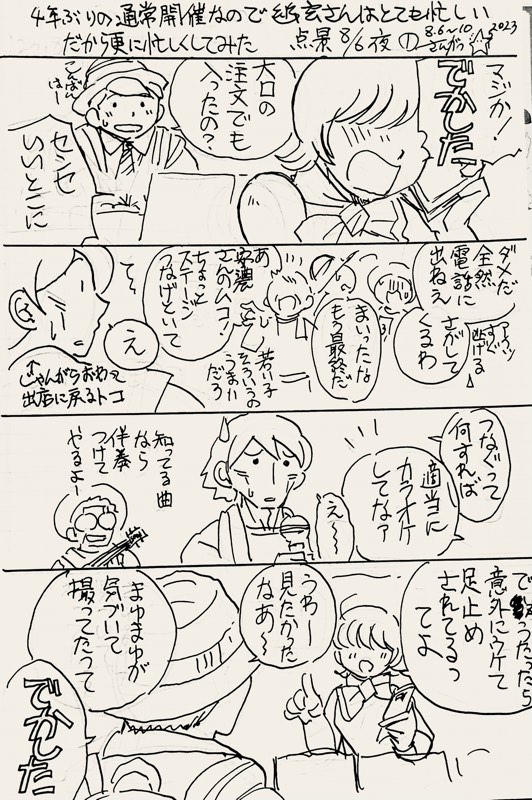 4年ぶりの通常開催なので紙玄さんはとても忙しい
だから更に忙しくしてみた
点景 8/6夜の
8.6〜10
さんがつ
2023
マジか!
でかした
大口の
注文でも
入ったの?
こんばん
はー
センセ
いいとこに
ダメだ
全然
電話に
出ねえ
アウッ
すぐ
出ける
さがして
くるわ
まいったな
もう最終だ
あ
安濃
さんのムコ!
ちょっと
ステージ
つなげといて
若い子
そういうの
うまい
だろ
え
て〜
↑
じゃんがらおわって
出店に戻るトコ
つなぐって
何すれば
適当に
カラオケ
してなァ
え〜
知ってる曲
なら
伴奏
つけて
やるよー
で
ったら
意外にウケて
足止め
されてるっ
てよ
うわー
見たかった
なあ〜
まゆまゆが
気づいて
撮ってたって
でかした